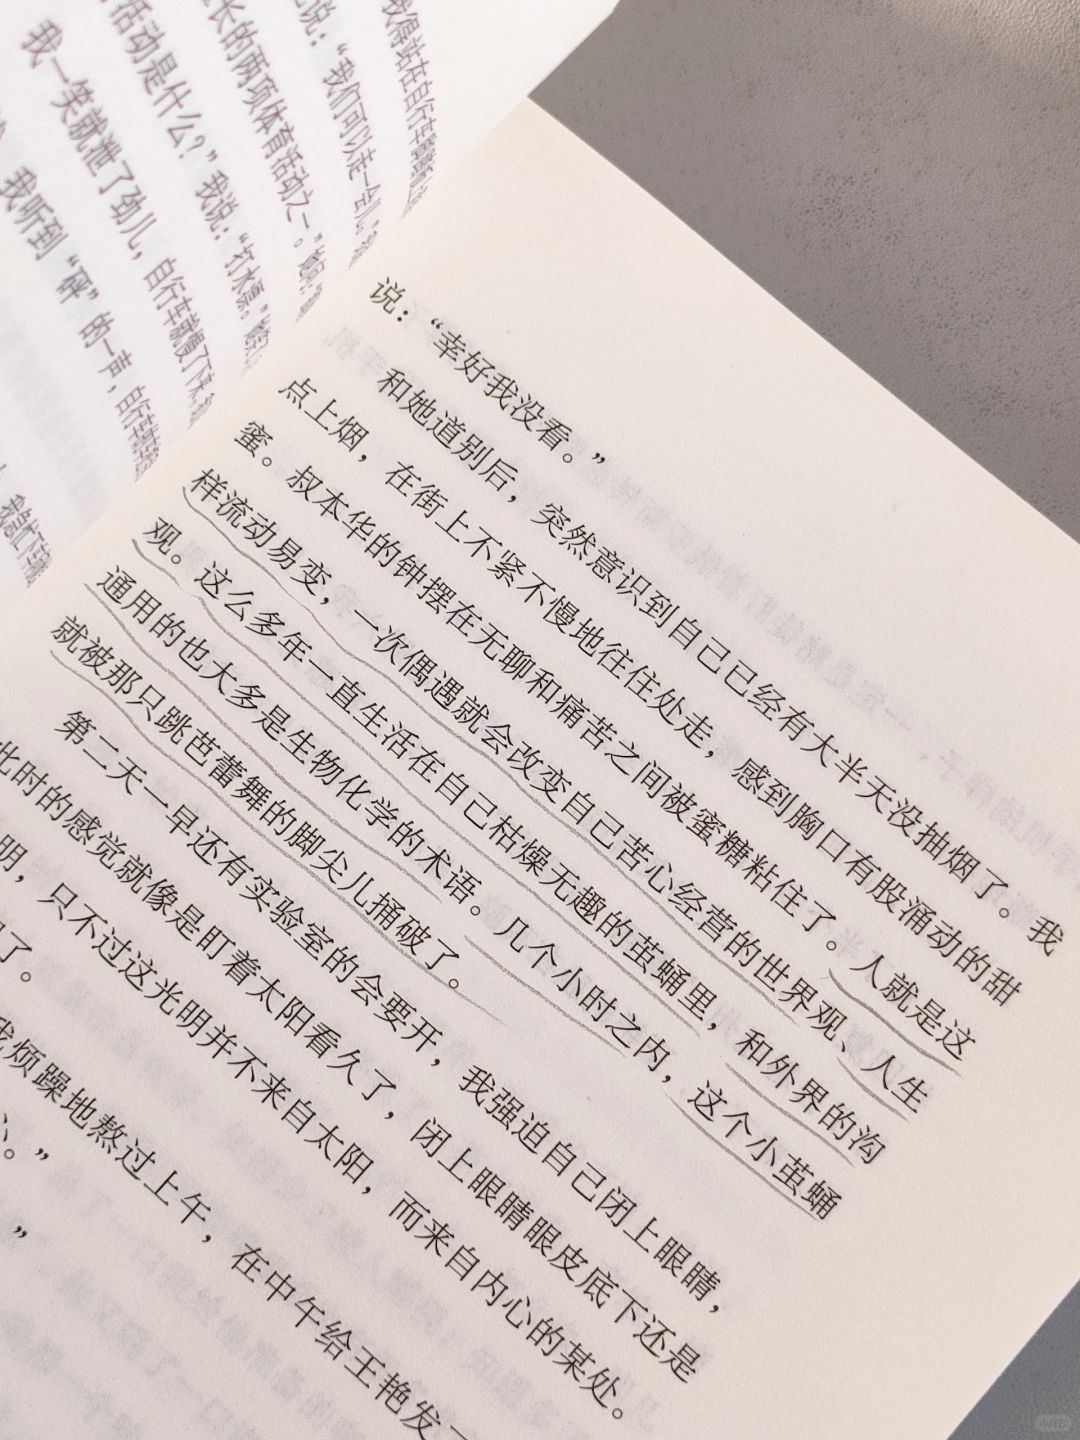 我得站在自行车
说：“我们可以走一会儿。”
长的两项体育活动之一。”
活动是什么？”我说：“打水漂。”
我一笑就泄了劲儿，自行车就慢了下来
我听到“砰”的一声，自行车
说：“幸好我没看。”
和她道别后，突然意识到自己已经有大半天没抽烟了。我
点上烟，在街上不紧不慢地往住处走，感到胸口有股涌动的甜
蜜。叔本华的钟摆在无聊和痛苦之间被蜜糖粘住了。人就是这
样流动易变，一次偶遇就会改变自己苦心经营的世界观、人生
观。这么多年一直生活在自己枯燥无趣的茧蛹里，和外界的沟
通用的也大多是生物化学的术语。几个小时之内，这个小茧蛹
就被那只跳芭蕾舞的脚尖儿捅破了。
第二天一早还有实验室的会要开，我强迫自己闭上眼睛，
此时的感觉就像是盯着太阳看久了，闭上眼睛眼皮底下还是
明，只不过这光明并不来自太阳，而来自内心的某处。
了。
烦躁地熬过上午，在中午给王艳发
。”
”